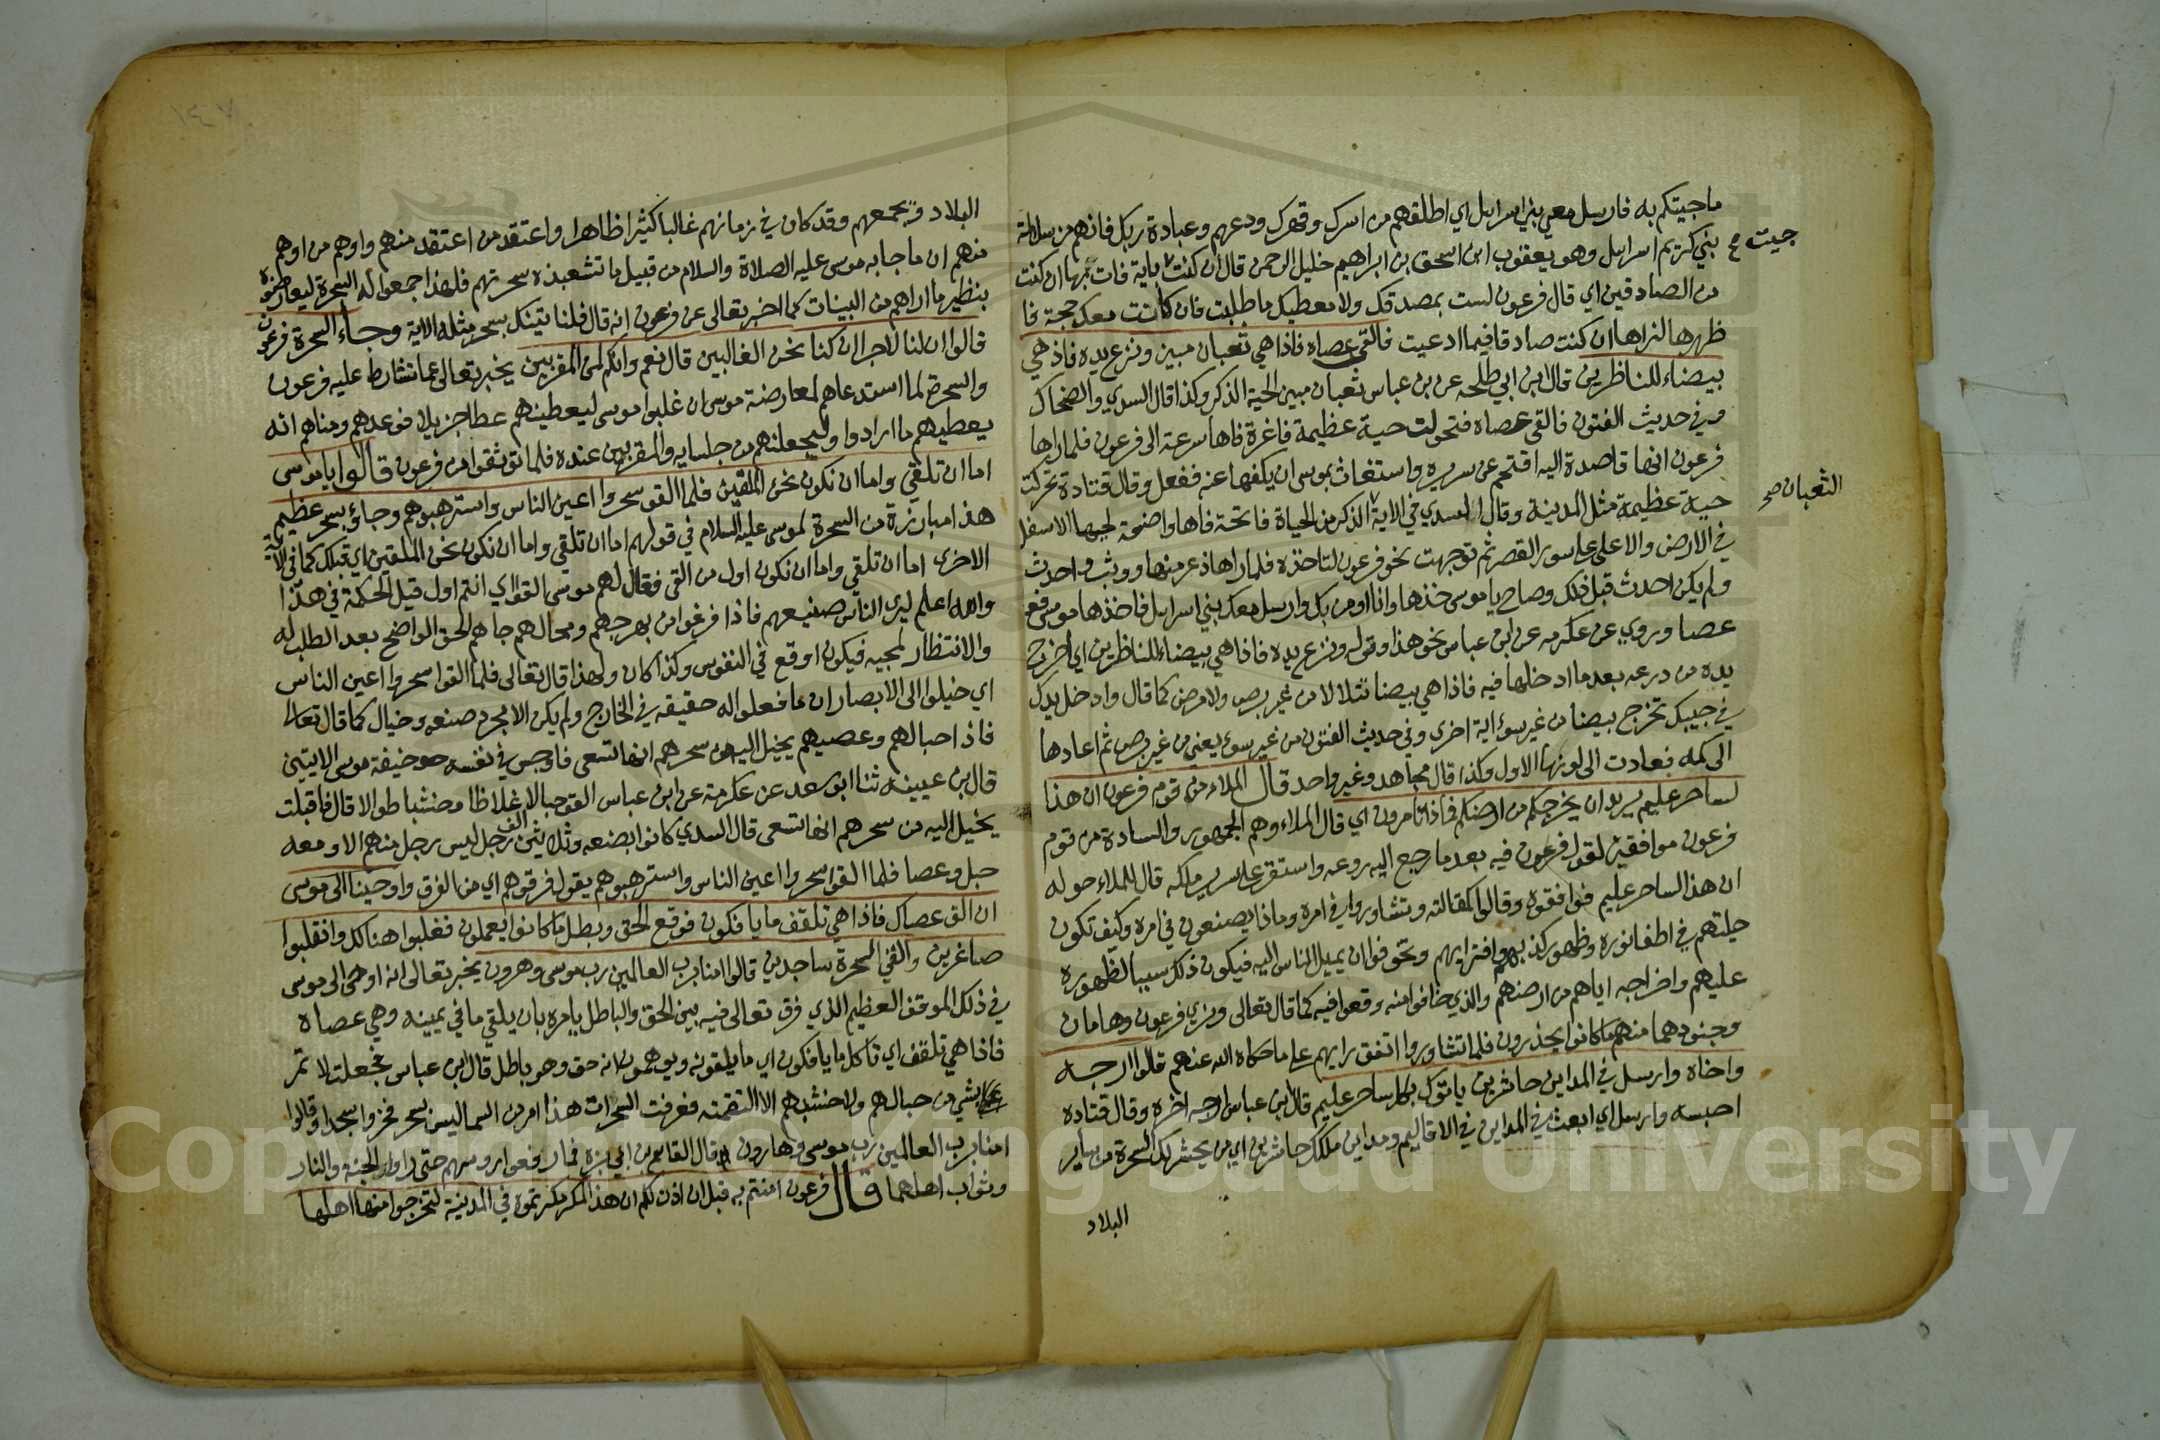 ماجيتكم به فارسل معي بني اسرايل اي اطلقهم من اسرك وقهرك ودعهم وعبادة ربك فانهم من سلالة
جيت صح
بني كريم اسرايل وهو يعقوب ابن اسحق بن ابراهيم خليل الرحمن قال ان كنت باية فات بها ان كنت
من الصادقين اي قال فرعون لست بمصدقك ولا معطيك ما طلبت فان كانت معك حجة فا
ظهرها لنراها ان كنت صادقا فيما ادعيت فالقى عصاه فاذا هي ثعبان مبين ونزع يده فاذ هي
بيضاء للناظرين قال ابن ابي طلحه عن بن عباس ثعبان مبين الحية الذكر وكذا قال السدي والضحاك
وفي حديث الفتون فالقى عصاه فتحولت حية عظيمة فاغرة فاها سرعة الى فرعون فلما راها
فرعون انها قاصدة اليه اقتحم عن سريره واستغاث بموسى ان يكفها عنه ففعل وقال قتادة تحركت
الثعبان صح
حية عظيمة مثل المدينة وقال السدي في الاية الذكر من الحياة فاتحة فاها واضعة لحيها الاسفل
في الارض والاعلى على سور القصر ثم توجهت نحو فرعون لتاخذه فلما راها ذعر منها ووثب واحدث
ولم يكن احدث قبل ذلك وصاح يا موسى خذها وانا اومن بك وارسل معك بني اسرايل فاخذها موسى فع
عصا وروي عن عكرمه عن ابن عباس نحو هذا وقوله ونزع يده فاذا هي بيضاء للناظرين اي اخرج
يده من درعه بعد ما ادخلها فيه فاذا هي بيضا تتلالا من غير برص ولا مرض كما قال وادخل يدك
في جيبك تخرج بيضا من غير سوء اية اخرى وفي حديث الفتون من غير سوء يعني من غير برص ثم اعادها
الى كمه فعادت الى لونها الاول وكذا قال مجاهد وغير واحد قال الملاء من قوم فرعون ان هذا
لساحر عليم يريد ان يخرجكم من ارضكم فماذا تامرون اي قال الملاء وهم الجمهور والسادة من قوم
فرعون موافقين لقول فرعون فيه بعد ما رجع اليه روعه واستقر على سرير ملكه قال للملاء حوله
ان هذا لساحر عليم فوافقوه وقالوا كمقالته وتشاوروا في امره وماذا يصنعون في امره وكيف تكون
حيلتهم في اطفا نوره وظهور كذبهم وافترايهم وتخوفوا ان يميل الناس اليه فيكون ذلك سببا لظهوره
عليهم واخراجه اياهم من ارضهم والذي خافوا منه وقعوا فيه كما قال تعالى ونري فرعون وهامان
وجنودهما منهم ما كانوا يحذرون فلما تشاوروا اتفق رايهم على ما حكاه الله عنهم قالوا ارجه
واخاه وارسل في المداين حاشرين ياتوك بكل ساحر عليم قال ابن عباس ارجه اخره وقال قتاده
احبسه وارسل اي ابعث في المداين في الاقاليم ومداين ملكك حاشرين اي من يحشر لك السحرة من ساير
البلاد
البلاد ويجمعهم وقد كان في زمانهم غالبا كثيرا ظاهرا واعتقد من اعتقد منهم واوهم من اوهم
منهم ان ما جا به موسى عليه الصلاة والسلام من قبيل ما تشعبذه سحرتهم فلهذا جمعوا له السحرة ليعارضوه
بنظير ما اراهم من البينات كما اخبر تعالى عن فرعون انه قال فلنا تينك بسحر مثله الاية وجاء السحرة فرعون
قالوا ان لنا لاجرا ان كنا نحن الغالبين قال نعم وانكم لمن المقربين يخبر تعالى عما تشارط عليه فرعون
والسحرة لما استدعاهم لمعارضة موسى ان غلبوا موسى ليعطينهم عطا جزيلا فوعدهم ومناهم انه
يعطيهم ما ارادوا وليجعلنهم من جلسايه والمقربين عنده فلما توثقوا من فرعون قالوا يا موسى
اما ان تلقي واما ان نكون نحن الملقين فلما القو سحروا اعين الناس واسترهبوهم وجاؤ بسحر عظيم
هذا مبارزة من السحرة لموسى عليه السلام في قولهم اما ان تلقي واما ان نكون نحن الملقين اي قبلك كما في الاية
الاخرى اما ان تلقي واما ان نكون اول من القى فقال لهم موسى القوا اي انتم اول قيل الحكمة في هذا
والله اعلم ليرى الناس صنيعهم فاذا فرغوا من بهرجهم ومحالهم جاهم الحق الواضح بعد الطلب له
والانتظار لمجيه فيكون اوقع في النفوس وكذا كان ولهذا قال تعالى فلما القوا سحروا اعين الناس
اي خيلوا الى الابصار ان ما فعلوا له حقيقه في الخارج ولم يكن الا مجرد صنعه وخيال كما قال تعالى
فاذا حبالهم وعصيهم يخيل اليه من سحرهم انها تسعى فاوجس في نفسه خيفة موسى الايتين
قال بن عيينه ثنا ابو سعد عن عكرمة عن ابن عباس القو حبالا غلاظا وخشبا طوالا قال فاقبلت
يخيل اليه من سحرهم انها تسعى قال السدي كانوا بضعه وثلاثين الف رجل ليس رجل منهم الا ومعه
حبل وعصا فلما القوا سحروا اعين الناس واسترهبوهم يقول فرقوهم اي من الفرق واوحينا الى موسى
ان الق عصاك فاذا هي تلقف ما يافكون فوقع الحق وبطل ما كانوا يعملون فغلبوا هنالك وانقلبوا
صاغرين والقي السحرة ساجدين قالوا امنا برب العالمين رب موسى وهرون يخبر تعالى انه اوحى الى موسى
في ذلك الموقف العظيم الذي فرق تعالى فيه بين الحق والباطل يامره بان يلقي ما في يمينه وهي عصاه
فاذا هي تلقف اي تاكل ما يافكون اي ما يلقونه ويوهمون انه حق وهو باطل قال ابن عباس فجعلت لا تمر
بشي من حبالهم ولا خشبهم الا التقمته فعرفت السحرة ان هذا امر من السما ليس بسحر فخروا سجدا وقالوا
امنا برب العالمين رب موسى وهارون وقال القاسم بن ابي بزة فما رفعوا روسهم حتى راوا الجنة والنار
وثواب اهلهما قال فرعون امنتم به قبل ان اذن لكم ان هذا لمكر مكرتموه في المدينة لتخرجوا منها اهلها